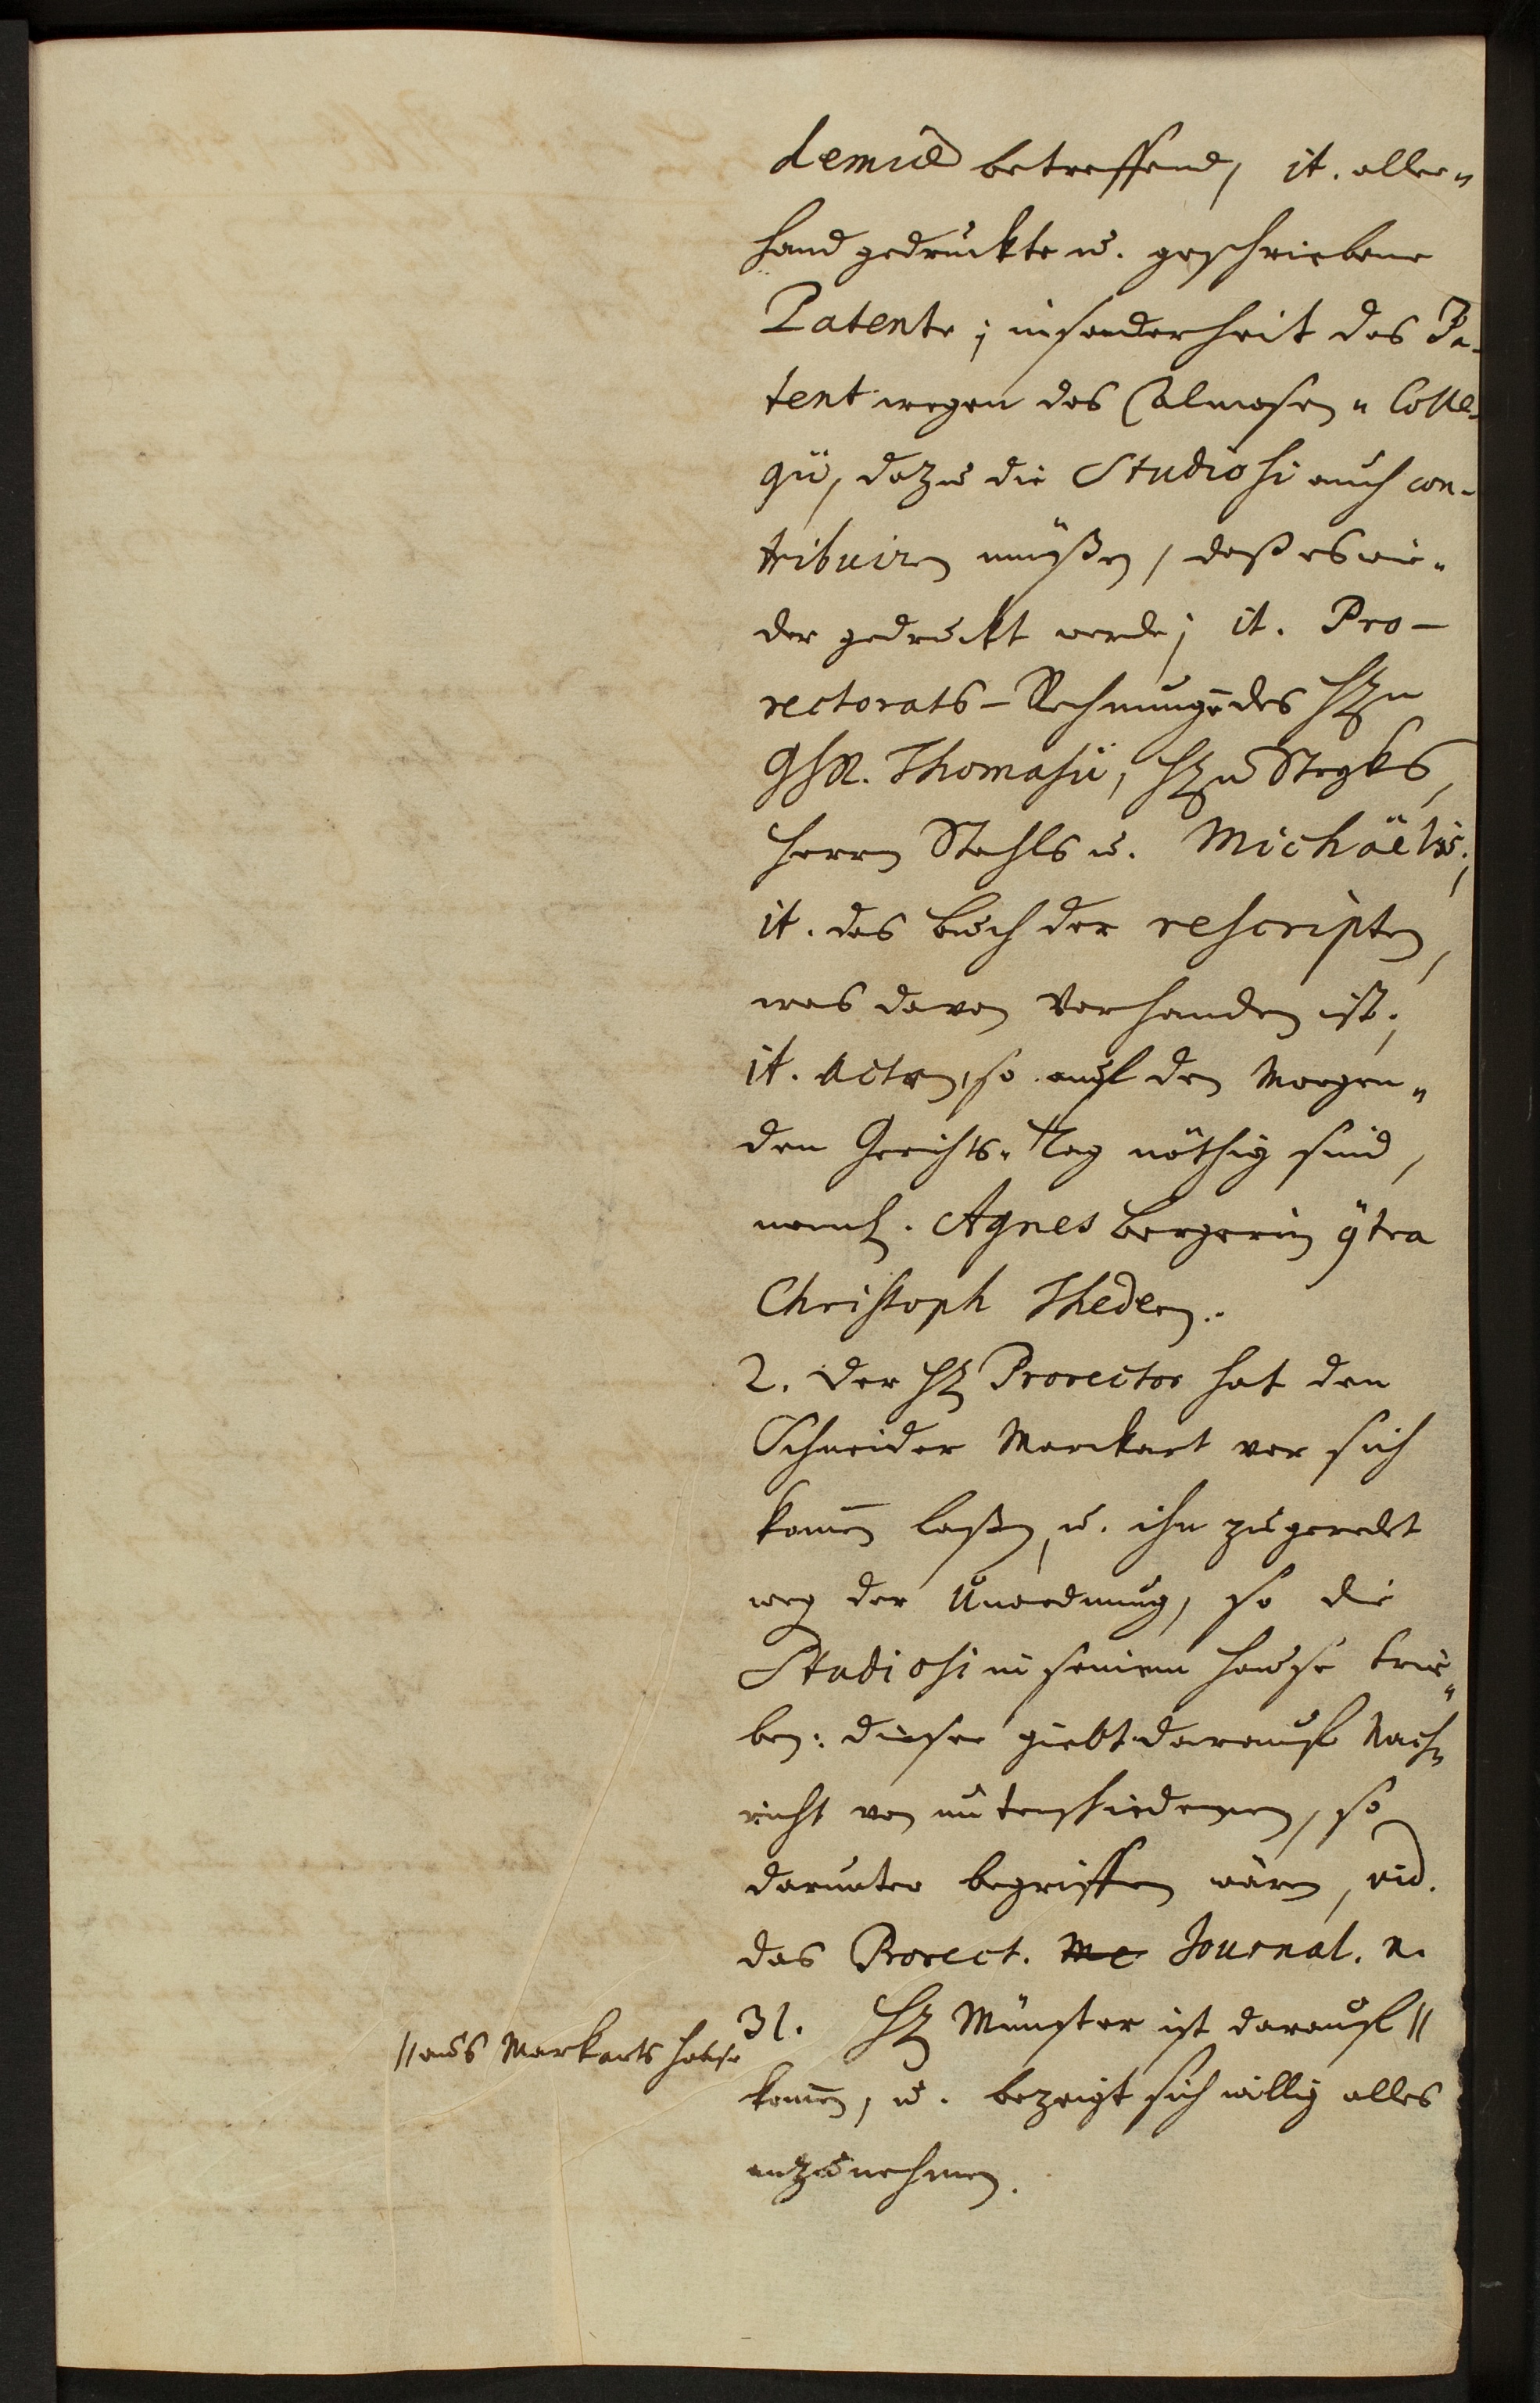 demie betreffend, it. aller„
hand gedruckte u. geschriebene
Patente; insonderheit das Pa-
tent wegen des Almosen„Colle-
gii, dazu die Studiosi auch con-
tribuiren müßen, daß es wie„
der gedruckt werde; it. Pro-
rectorats-Rechnung des Hrn
GhR. Thomasii, Hrn Stryks,
Herrn Stahls u. Michäelis;
it. das Buch der rescripten,
was davon vorhanden ist;
it. Acten, so auf den Morgen„
den Gerichts-Tag nöthig sind,
neml. Agnes Bergerin 9tra
Christoph Theden.
2. Der Hr Prorector hat den
Schneider Marckart vor sich
kom̄en laßen, u. ihn zugeredet
weg der Unordnung, so die
Studiosi in seinem Hause trie„
ben: dieser giebt darauf Nach„
richt von unterschiedenen, so
darunter begriffen wären, vid.
das Prorect. Me Journal. n.
31. Hr Münster ist darauf //
//aus Markarts Hause
kom̄en, u. bezeigt sich willig alles
anzunehmen.